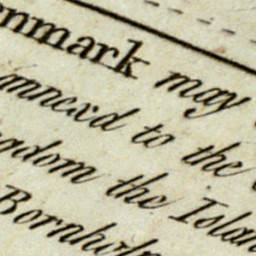 nmark may
annexd to the
gdom the Islan
Bornholm